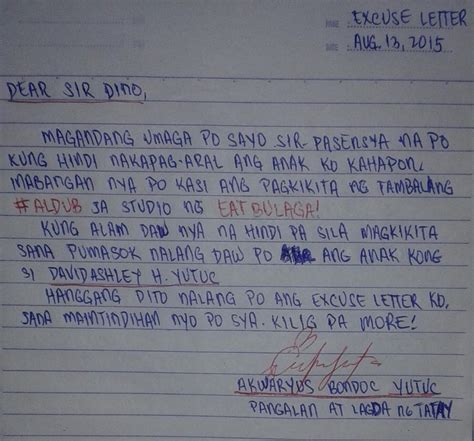 EXCUSE LETTER
AUG. 13, 2015
DEAR SIR DINO,
MAGANDANG UMAGA PO SAYO SIR. PASENSYA NA PO
KUNG HINDI NAKAPAG-ARAL ANG ANAK KO KAHAPON.
MABANGAN NYA PO KASI ANG PAGKIKITA NG TAMBALANG
#ALDUB SA STUDIO NG EAT BULAGA!
KUNG ALAM DAW NYA NA HINDI PA SILA MAGKIKITA
SANA PUMASOK NALANG DAW PO ANG ANAK KONG
SI DAVID ASHLEY H. YUTUC
HANGGANG DITO NALANG PO ANG EXCUSE LETTER KO.
SANA MAINTINDIHAN NYO PO SYA. KILIG PA MORE!
AKWARYUS BONDOC YUTUC
PANGALAN AT LAGDA NG TATAY